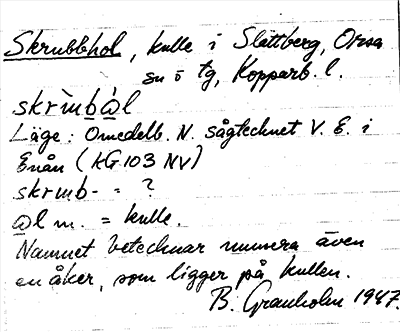 Skrubbhol, kulle i Slättberg, Orsa
sn o tg, Kopparb. l.
skrìmbàl
Läge: Omedelb. N. sågtecknet V. E. i
Enån (KG 103 NV)
skrmb- = ?
ål m. = kulle.
Namnet betecknar numera även
en åker, som ligger på kullen.
B. Granholm 1947.